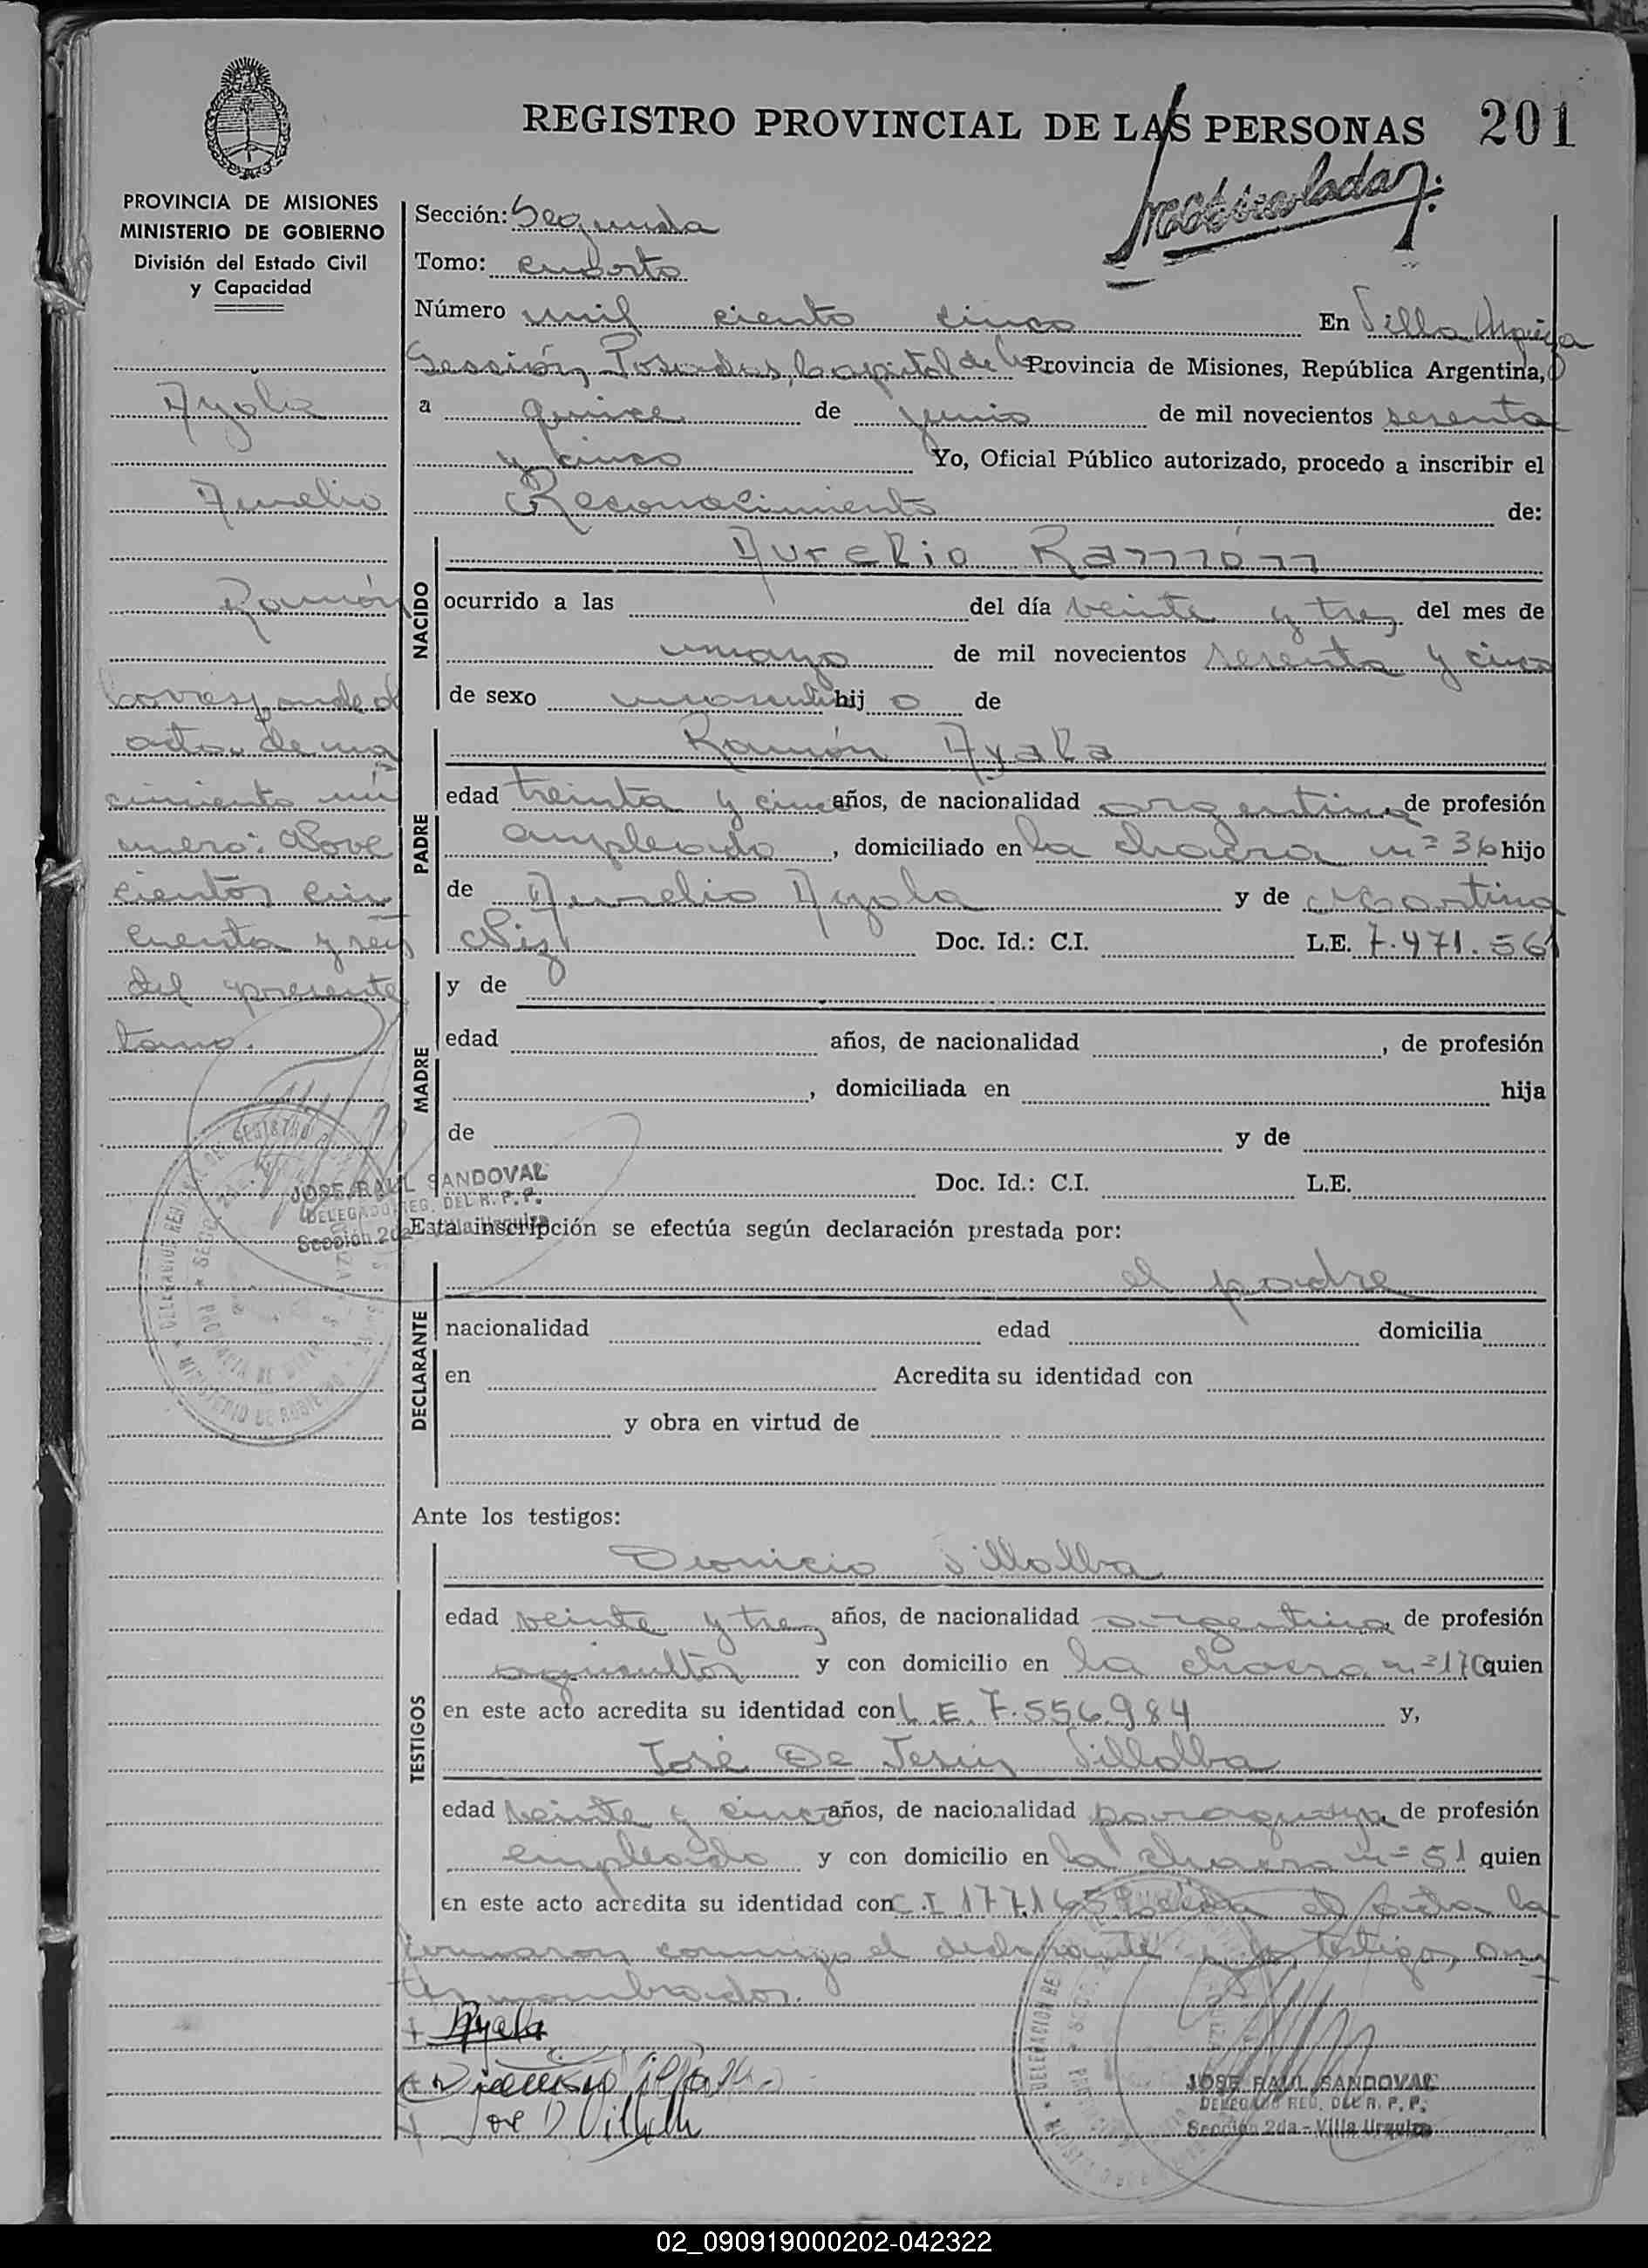 REGISTRO PROVINCIAL DE LAS PERSONAS 201
Matriculado
PROVINCIA DE MISIONES
MINISTERIO DE GOBIERNO
División del Estado Civil
y Capacidad
Ayala
Aurelio
Ramón
Corresponde al
acta de na
cimiento nú
mero: Nove
cientos cin
cuenta y seis
del presente
tomo.
Sección: Segunda
Tomo: cuarto
Número mil ciento cinco En Villa Urquiza
Sección, Posadas, Capital de la Provincia de Misiones, República Argentina,
a quince de junio de mil novecientos sesenta
y cinco Yo, Oficial Público autorizado, procedo a inscribir el
Reconocimiento de:
NACIDO
Aurelio Ramón
ocurrido a las del día veinte y tres del mes de
mayo de mil novecientos sesenta y cinco
de sexo masculi hij o de
PADRE
Ramón Ayala
edad treinta y cinco años, de nacionalidad argentina de profesión
empleado, domiciliado en la chacra nº 36 hijo
de Aurelio Ayala y de Martina
Niz Doc. Id.: C.I. L.E. 7.471.561
MADRE
y de
edad años, de nacionalidad , de profesión
, domiciliada en hija
de y de
Doc. Id.: C.I. L.E.
JOSE RAUL SANDOVAL
DELEGADO REG. DEL R. P. P.
Sección 2da - Villa Urquiza
Esta inscripción se efectúa según declaración prestada por:
DECLARANTE
el padre
nacionalidad edad domicilia
en Acredita su identidad con
y obra en virtud de
Ante los testigos:
TESTIGOS
Dionicio Villalba
edad veinte y tres años, de nacionalidad argentina, de profesión
agricultor y con domicilio en la chacra nº 170 quien
en este acto acredita su identidad con L.E. 7.556.984 y,
José De Jesús Villalba
edad veinte y cinco años, de nacionalidad paraguaya, de profesión
empleado y con domicilio en la chacra nº 51 quien
en este acto acredita su identidad con C.I. 177.165 el acta la
firmaron conmigo el declarante y los testigos an
tes nombrados.
Ayala
Dionicio Villalba
Jose D Villalba
JOSE RAUL SANDOVAL
DELEGADO REG. DEL R. P. P.
Sección 2da - Villa Urquiza
02_090919000202-042322